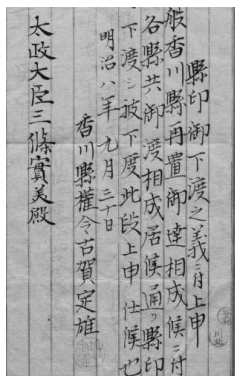 縣印御下渡之義ニ付上申
般香川縣再置御達相成候ニ付
各縣共御渡相成居候通リ縣印
下渡シ被下度此段上申仕候也
明治八年九月三十日
香川縣權令古賀定雄
太政大臣三條實美殿